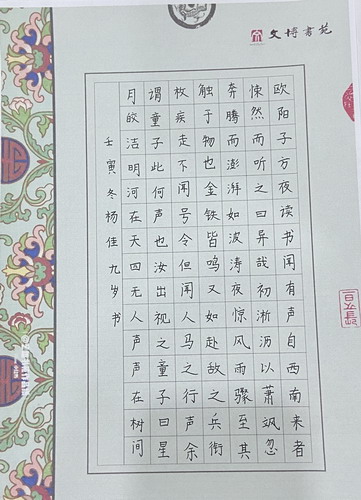 文博书苑
欧阳子方夜读书闻有声自西南来者
悚然而听之曰异哉初淅沥以萧飒忽
奔腾而澎湃如波涛夜惊风雨骤至其
触于物也金铁皆鸣又如赴敌之兵衔
枚疾走不闻号令但闻人马之行声余
谓童子此何声也汝出视之童子曰星
月皎洁明河在天四无人声声在树间
壬寅冬杨佳九岁书